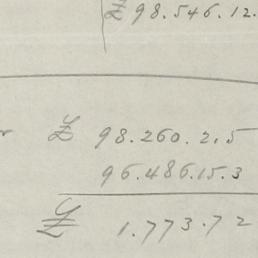 £ 98.546.12.
r £ 98.260.2.5
96.486.15.3
£ 1.773.7 2